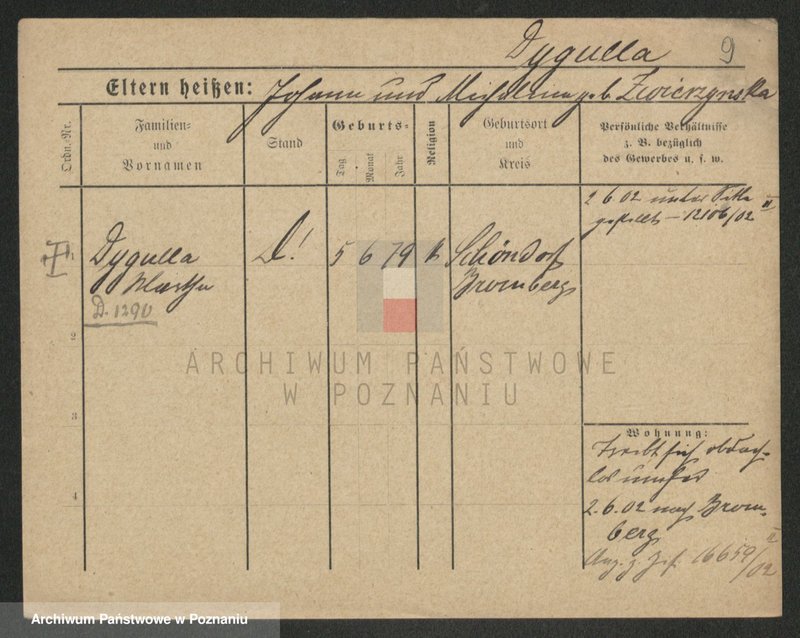 Dygulla 9
Eltern heißen: Johann und Michalina geb Zwierzynska
Ordn.-Nr.
Familien-
und
Vornamen
Stand
Geburts-
Tag
Monat
Jahr
Religion
Geburtsort
und
Kreis
Persönliche Verhältnisse
z. B. bezüglich
des Gewerbes u. s. w.
2.6.02 unter Sitte
gestellt – 12106/02 II
1
Dygulla
Martha
D. 1290
D!
5 6 79 k
Schöndorf
Bromberg
2
3
4
Wohnung:
Treibt sich obdach-
los umher
2.6.02 nach Brom-
berg
16659/02 II
ARCHIWUM PAŃSTWOWE
W POZNANIU
Archiwum Państwowe w Poznaniu